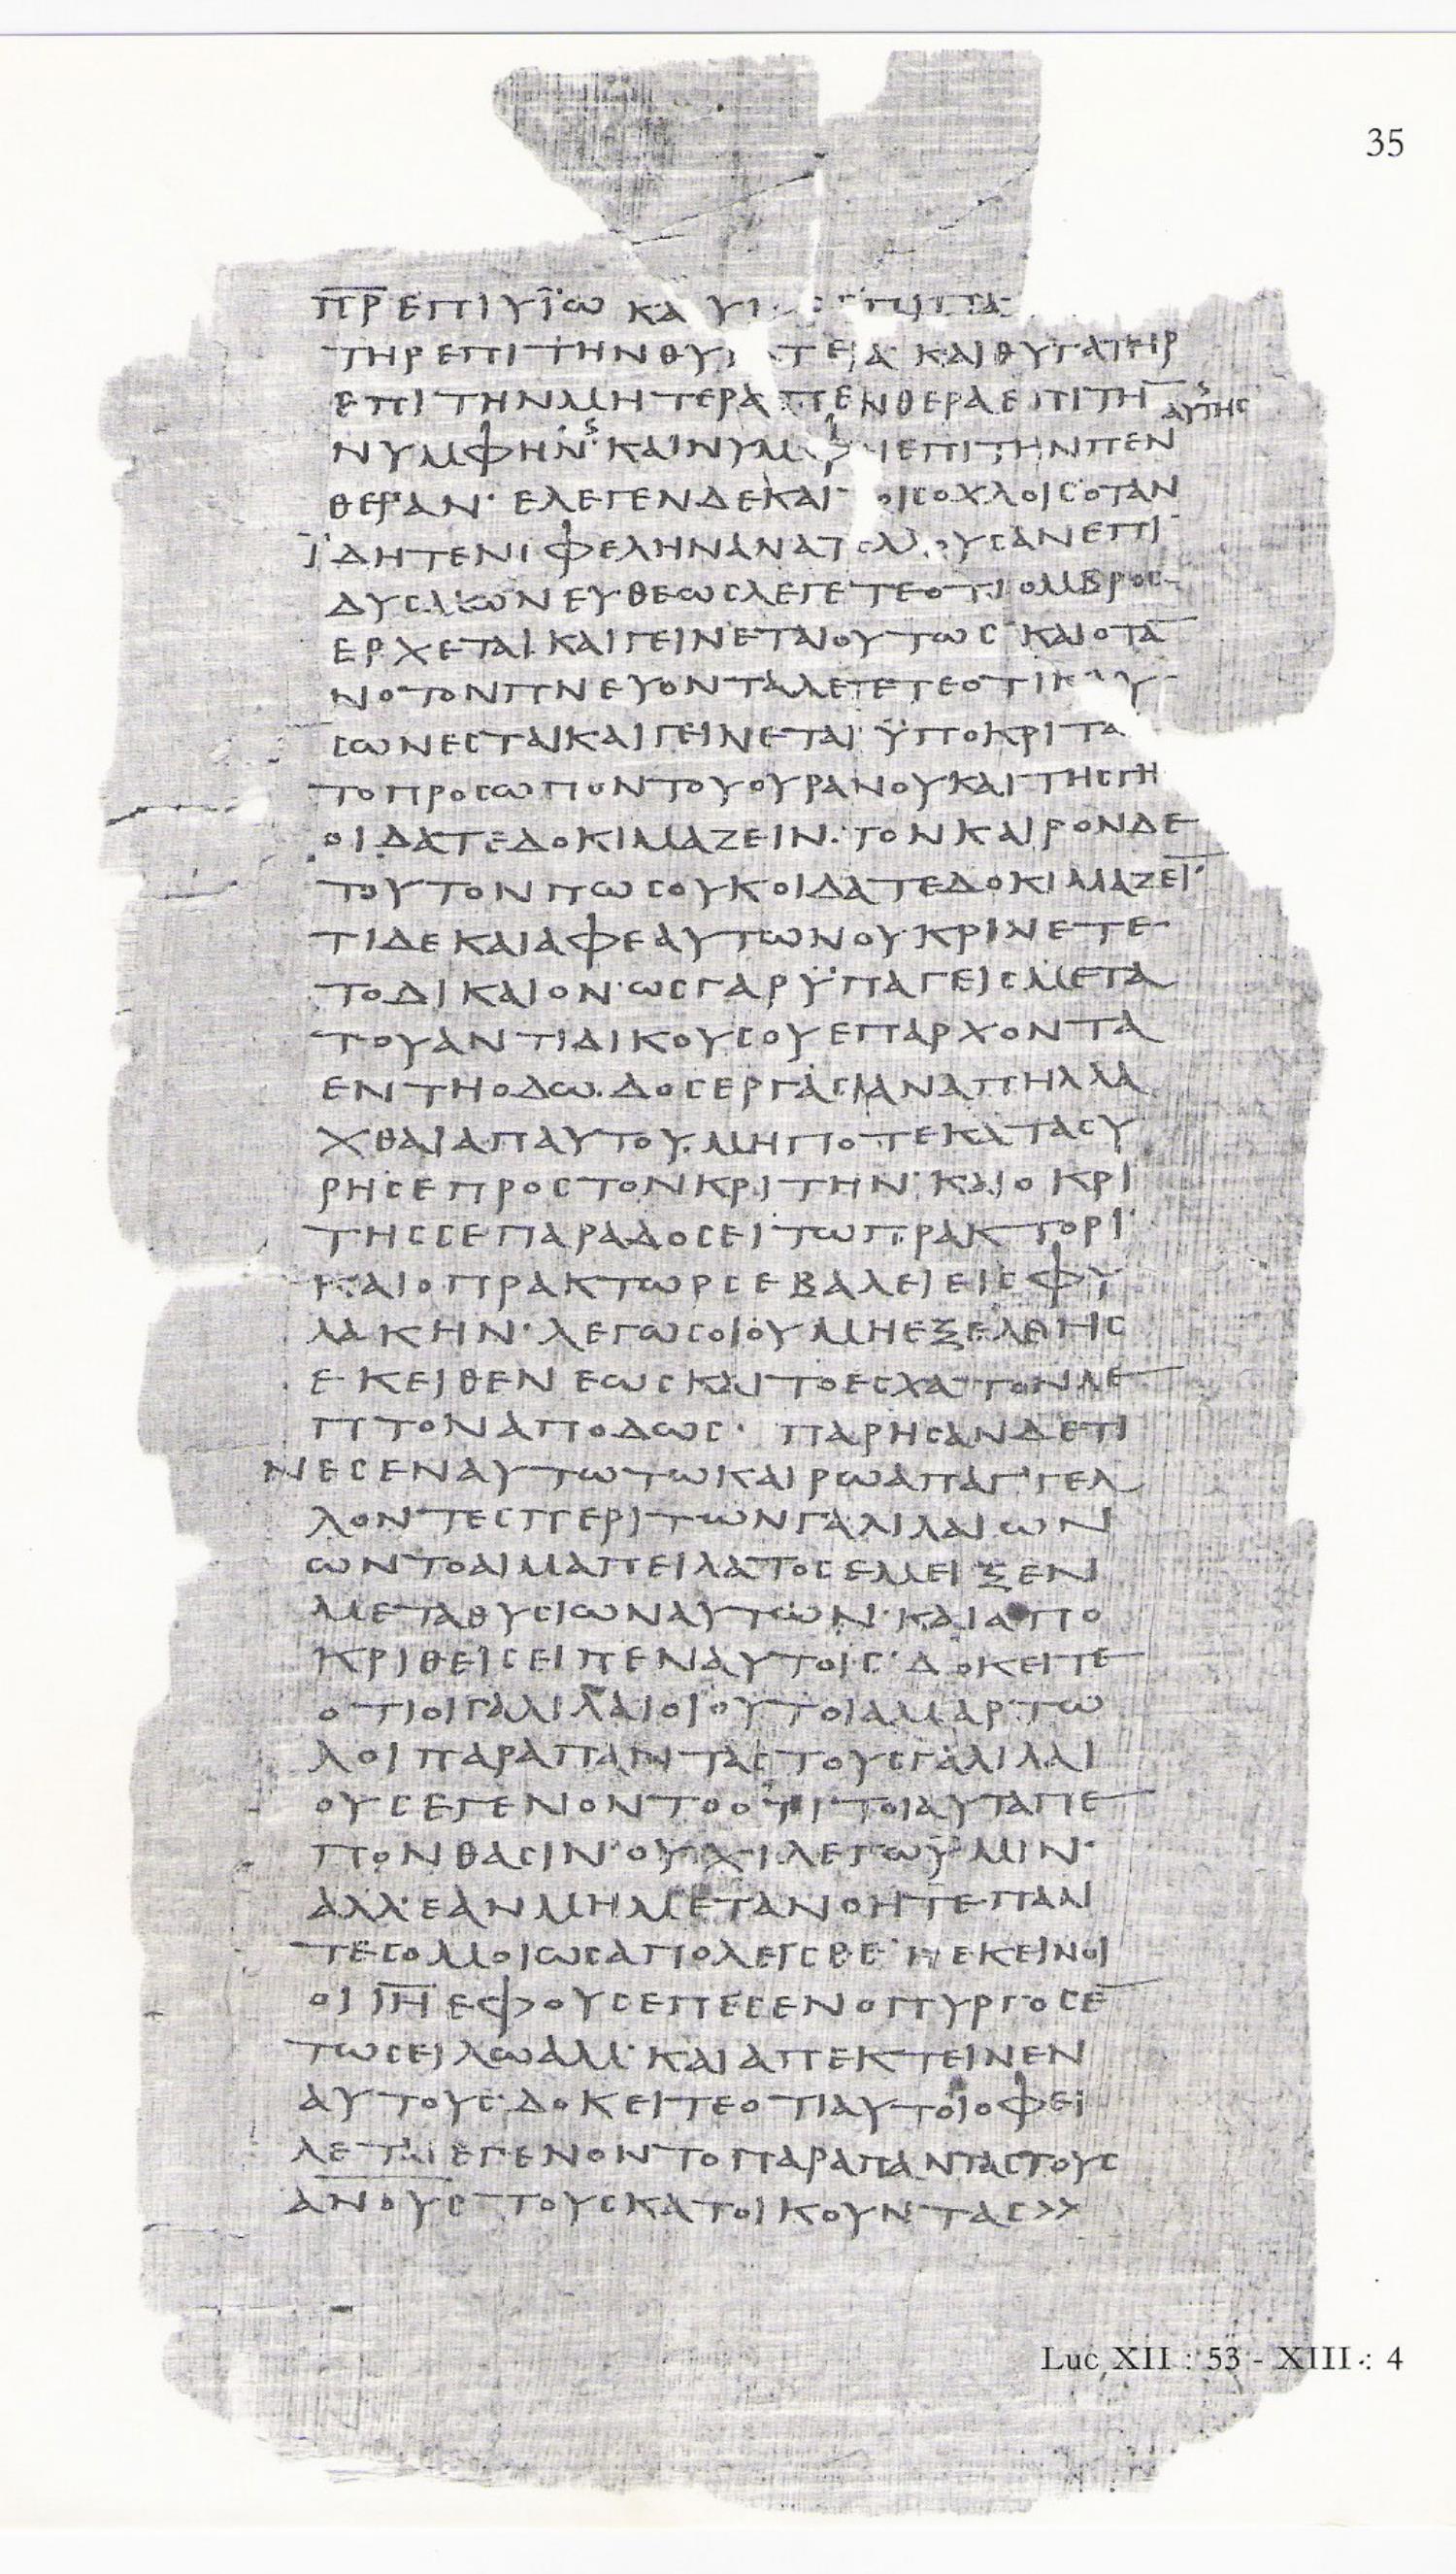 35
ΠΡ ΕΠΙ ΥΪΩ ΚΑ ΥΙ
ΤΗΡ ΕΠΙ ΤΗΝ ΚΑΙ ΘΥΓΑΤΗΡ
ΕΠΙ ΤΗΝ ΜΗΤΕΡΑ ΠΕΝΘΕΡΑ ΕΠΙ ΤΗ̅ ΑΥΤΗΣ
ΝΥΜΦΗΝ· ΚΑΙ ΕΠΙ ΤΗΝ ΠΕΝ
ΘΕΡΑΝ· ΕΛΕΓΕΝ ΔΕ ΚΑΙ ΟΧΛΟΙC ΟΤΑΝ
ΪΔΗΤΕ ΝΕΦΕΛΗΝ ΕΠΙ
ΔΥCΜΩΝ ΕΥΘΕΩC ΛΕΓΕΤΕ ΟΤΙ ΟΜΒΡΟC
ΕΡΧΕΤΑΙ ΚΑΙ ΓΕΙΝΕΤΑΙ ΟΥΤΩC ΚΑΙ ΟΤΑ̅
ΝΟΤΟΝ ΠΝΕΥΟΝΤΑ ΛΕΓΕΤΕ ΟΤΙ ΚΑΥ
CΩΝ ΕCΤΑΙ ΚΑΙ ΓΕΙΝΕΤΑΙ ΫΠΟΚΡΙΤΑ
ΤΟ ΠΡΟCΩΠΟΝ ΤΟΥ ΟΥΡΑΝΟΥ ΚΑΙ ΤΗC ΓΗ
ΟΙΔΑΤΕ ΔΟΚΙΜΑΖΕΙΝ· ΤΟΝ ΚΑΙΡΟΝ ΔΕ
ΤΟΥΤΟΝ ΠΩC ΟΥΚ ΟΙΔΑΤΕ ΔΟΚΙΜΑΖΕΙ̅·
ΤΙ ΔΕ ΚΑΙ ΑΦ ΕΑΥΤΩΝ ΟΥ ΚΡΙΝΕΤΕ
ΤΟ ΔΙΚΑΙΟΝ· ΩC ΓΑΡ ΫΠΑΓΕΙC ΜΕΤΑ
ΤΟΥ ΑΝΤΙΔΙΚΟΥ CΟΥ ΕΠ ΑΡΧΟΝΤΑ
ΕΝ ΤΗ ΟΔΩ· ΔΟC ΕΡΓΑCΙΑΝ ΑΠΗΛΛΑ
ΧΘΑΙ ΑΠ ΑΥΤΟΥ· ΜΗΠΟΤΕ ΚΑΤΑCΥ
ΡΗ CΕ ΠΡΟC ΤΟΝ ΚΡΙΤΗΝ· ΚΑΙ Ο ΚΡΙ
ΤΗC CΕ ΠΑΡΑΔΟCΕΙ ΤΩ ΠΡΑΚΤΟΡΙ·
ΚΑΙ Ο ΠΡΑΚΤΩΡ CΕ ΒΑΛΕΙ ΕΙC ΦΥ
ΛΑΚΗΝ· ΛΕΓΩ CΟΙ ΟΥ ΜΗ ΕΞΕΛΘΗC
ΕΚΕΙΘΕΝ ΕΩC ΚΑΙ ΤΟ ΕCΧΑΤΟΝ ΛΕ
ΠΤΟΝ ΑΠΟΔΩC· ΠΑΡΗCΑΝ ΔΕ ΤΙ
ΝΕC ΕΝ ΑΥΤΩ ΤΩ ΚΑΙΡΩ ΑΠΑΓ'ΓΕΛ
ΛΟΝΤΕC ΠΕΡΙ ΤΩΝ ΓΑΛΙΛΑΙΩΝ
ΩΝ ΤΟ ΑΙΜΑ ΠΕΙΛΑΤΟC ΕΜΕΙΞΕΝ
ΜΕΤΑ ΘΥCΙΩΝ ΑΥΤΩΝ· ΚΑΙ ΑΠΟ
ΚΡΙΘΕΙC ΕΙΠΕΝ ΑΥΤΟΙC· ΔΟΚΕΙΤΕ
ΟΤΙ ΟΙ ΓΑΛΙΛΑΙΟΙ ΟΥΤΟΙ ΑΜΑΡΤΩ
ΛΟΙ ΠΑΡΑ ΠΑΝΤΑC ΤΟΥC ΓΑΛΙΛΑΙ
ΟΥC ΕΓΕΝΟΝΤΟ ΟΤΙ ΤΟΙΑΥΤΑ ΠΕ
ΠΟΝΘΑCΙΝ· ΟΥΧΙ ΛΕΓΩ ΫΜΙΝ·
ΑΛΛ' ΕΑΝ ΜΗ ΜΕΤΑΝΟΗΤΕ ΠΑΝ
ΤΕC ΟΜΟΙΩC ΑΠΟΛΕΙCΘΕ· Η ΕΚΕΙΝΟΙ
ΟΙ Ι̅Η̅ ΕΦ ΟΥC ΕΠΕCΕΝ Ο ΠΥΡΓΟC Ε̅
ΤΩ CΕΙΛΩΑΜ· ΚΑΙ ΑΠΕΚΤΕΙΝΕΝ
ΑΥΤΟΥC· ΔΟΚΕΙΤΕ ΟΤΙ ΑΥΤΟΙ ΟΦΕΙ
ΛΕΤΑΙ ΕΓΕΝΟΝΤΟ ΠΑΡΑ ΠΑΝΤΑC ΤΟΥC
Α̅Ν̅Ο̅Υ̅C̅ ΤΟΥC ΚΑΤΟΙΚΟΥΝΤΑC>>
Luc XII : 53 - XIII : 4